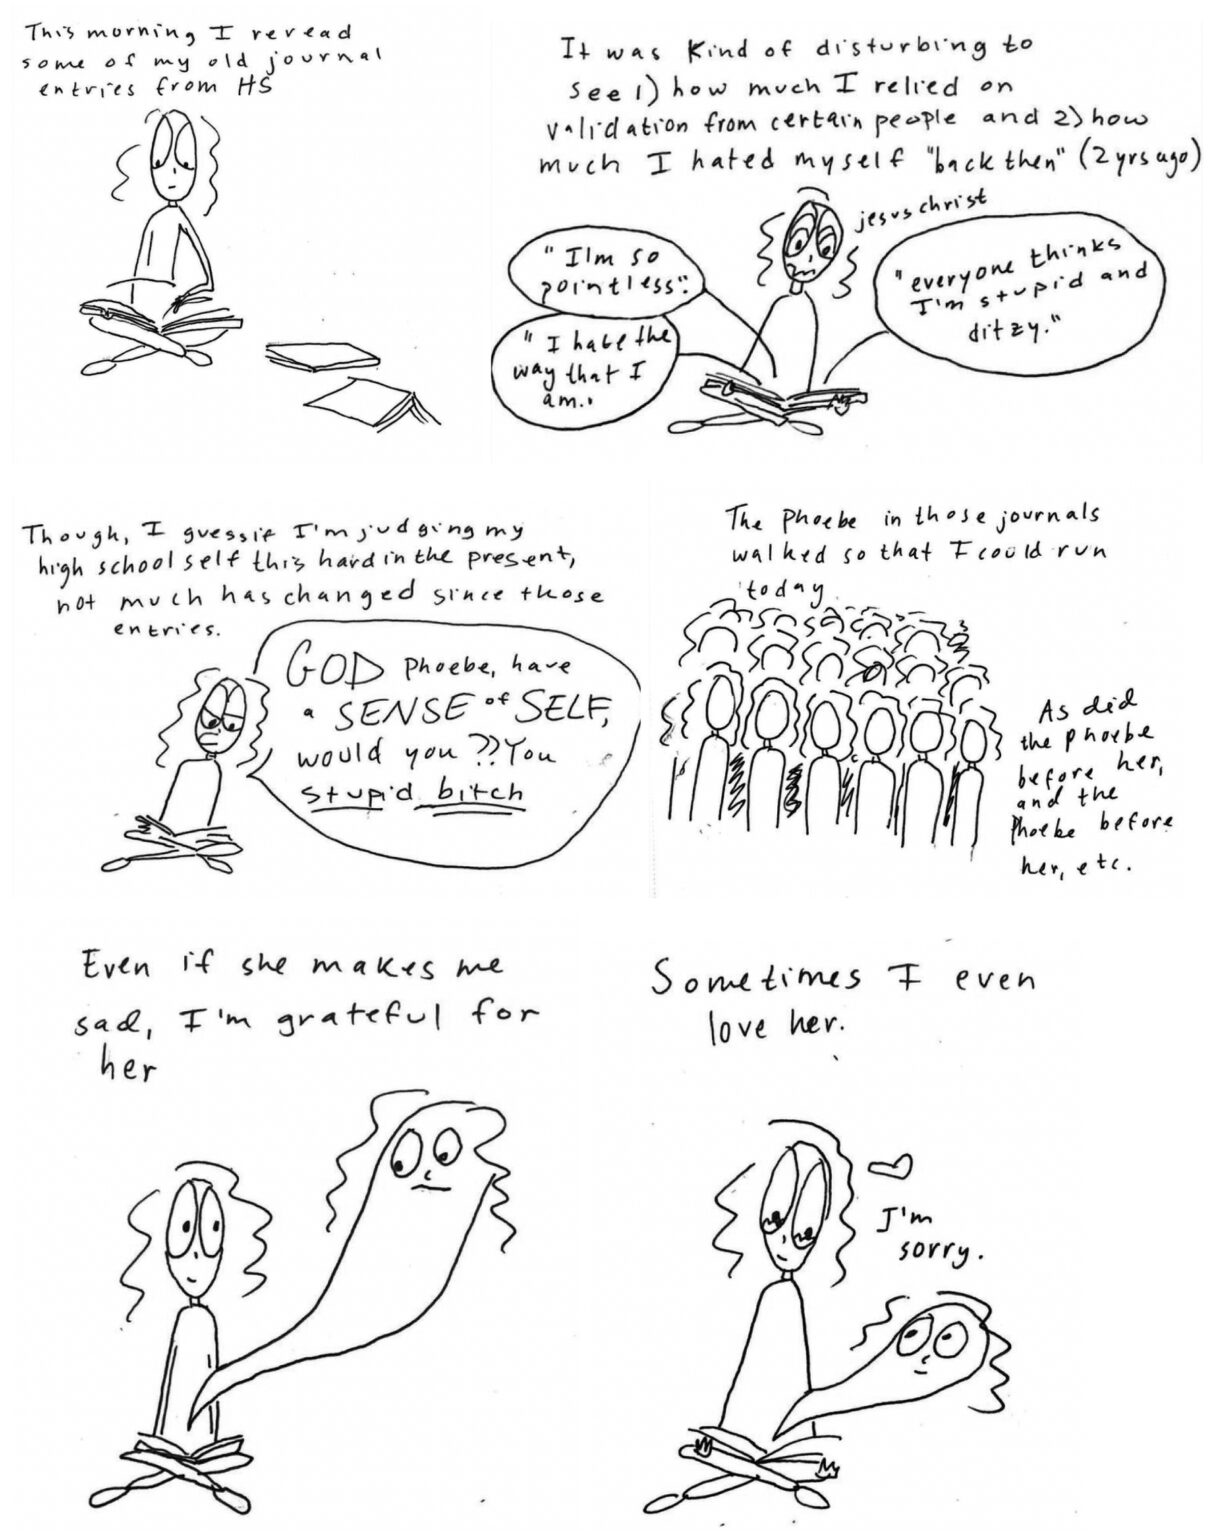 This morning I reread
some of my old journal
entries from HS
It was kind of disturbing to
see 1) how much I relied on
validation from certain people and 2) how
much I hated myself "back then" (2 yrs ago)
jesus christ
"I'm so
pointless".
"I hate the
way that I
am..
"everyone thinks
I'm stupid and
ditzy."
Though, I guess if I'm judging my
high school self this hard in the present,
not much has changed since those
entries.
GOD Phoebe, have
a SENSE of SELF,
would you ?? You
stupid bitch
The Phoebe in those journals
walked so that I could run
today.
As did
the Phoebe
before her,
and the
Phoebe before
her, etc.
Even if she makes me
sad, I'm grateful for
her
Sometimes I even
love her.
I'm
sorry.